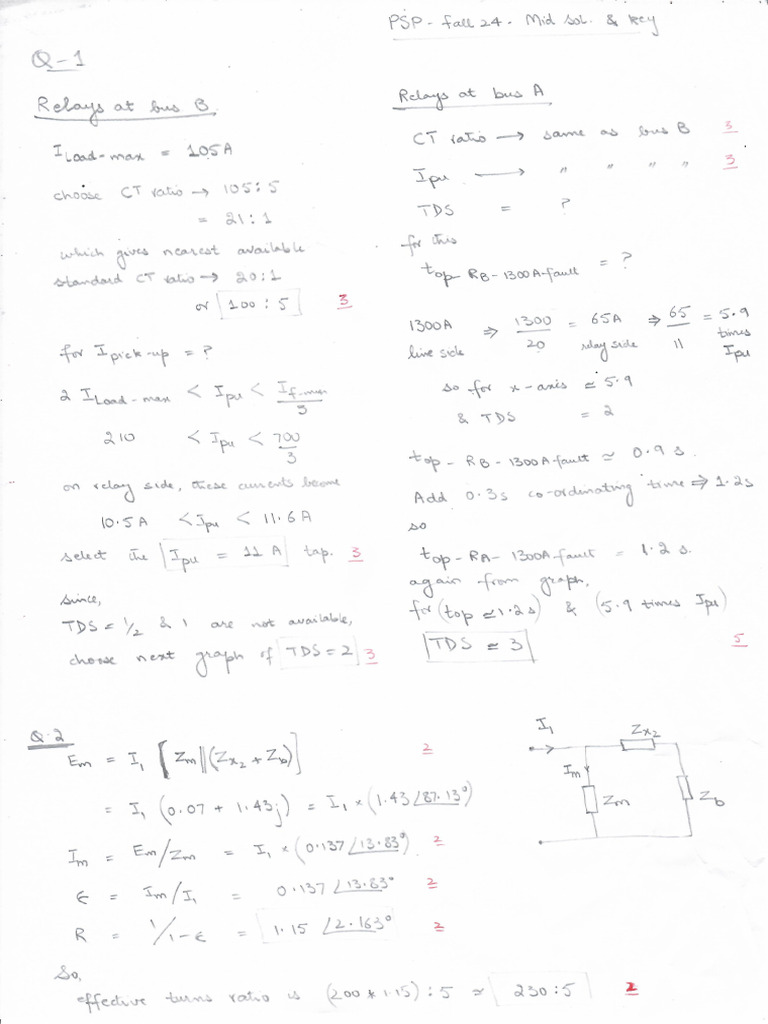 PSP - Fall 24 - Mid Sol. & key
Q-1
Relays at bus B.
I Load-max = 105A
choose CT ratio → 105:5
= 21:1
which gives nearest available
standard CT ratio → 20:1
or 100:5 3
for I pick-up = ?
2 I Load-max < Ipu < If-min/3
210 < Ipu < 700/3
on relay side, these currents become
10.5A < Ipu < 11.6A
select the Ipu = 11 A tap. 3
since,
TDS = 1/2 & 1 are not available,
choose next graph of TDS = 2 3
Relays at bus A
CT ratio → same as bus B 3
Ipu → " " " " 3
TDS = ?
for this
top-RB-1300A-fault = ?
1300A ⇒ 1300/20 = 65A ⇒ 65/11 = 5.9
line side relay side times Ipu
so for x-axis ≃ 5.9
& TDS = 2
top-RB-1300A-fault ≃ 0.9 s.
Add 0.3s co-ordinating time ⇒ 1.2s
so
top-RA-1300A-fault = 1.2 s.
again from graph,
for (top ≃ 1.2s) & (5.9 times Ipu)
TDS ≃ 3 5
Q-2
Em = I1 [Zm||(Zx2 + Zb)] 2
= I1 (0.07 + 1.43j) = I1 × (1.43∠87.13°)
Im = Em/Zm = I1 × (0.137∠13.83°) 2
ϵ = Im/I1 = 0.137∠13.83° 2
R = 1/1-ϵ = 1.15∠2.163° 2
So,
effective turns ratio is (200*1.15):5 ≃ 230:5 2
I1
Zx2
Im
Zm
Zb